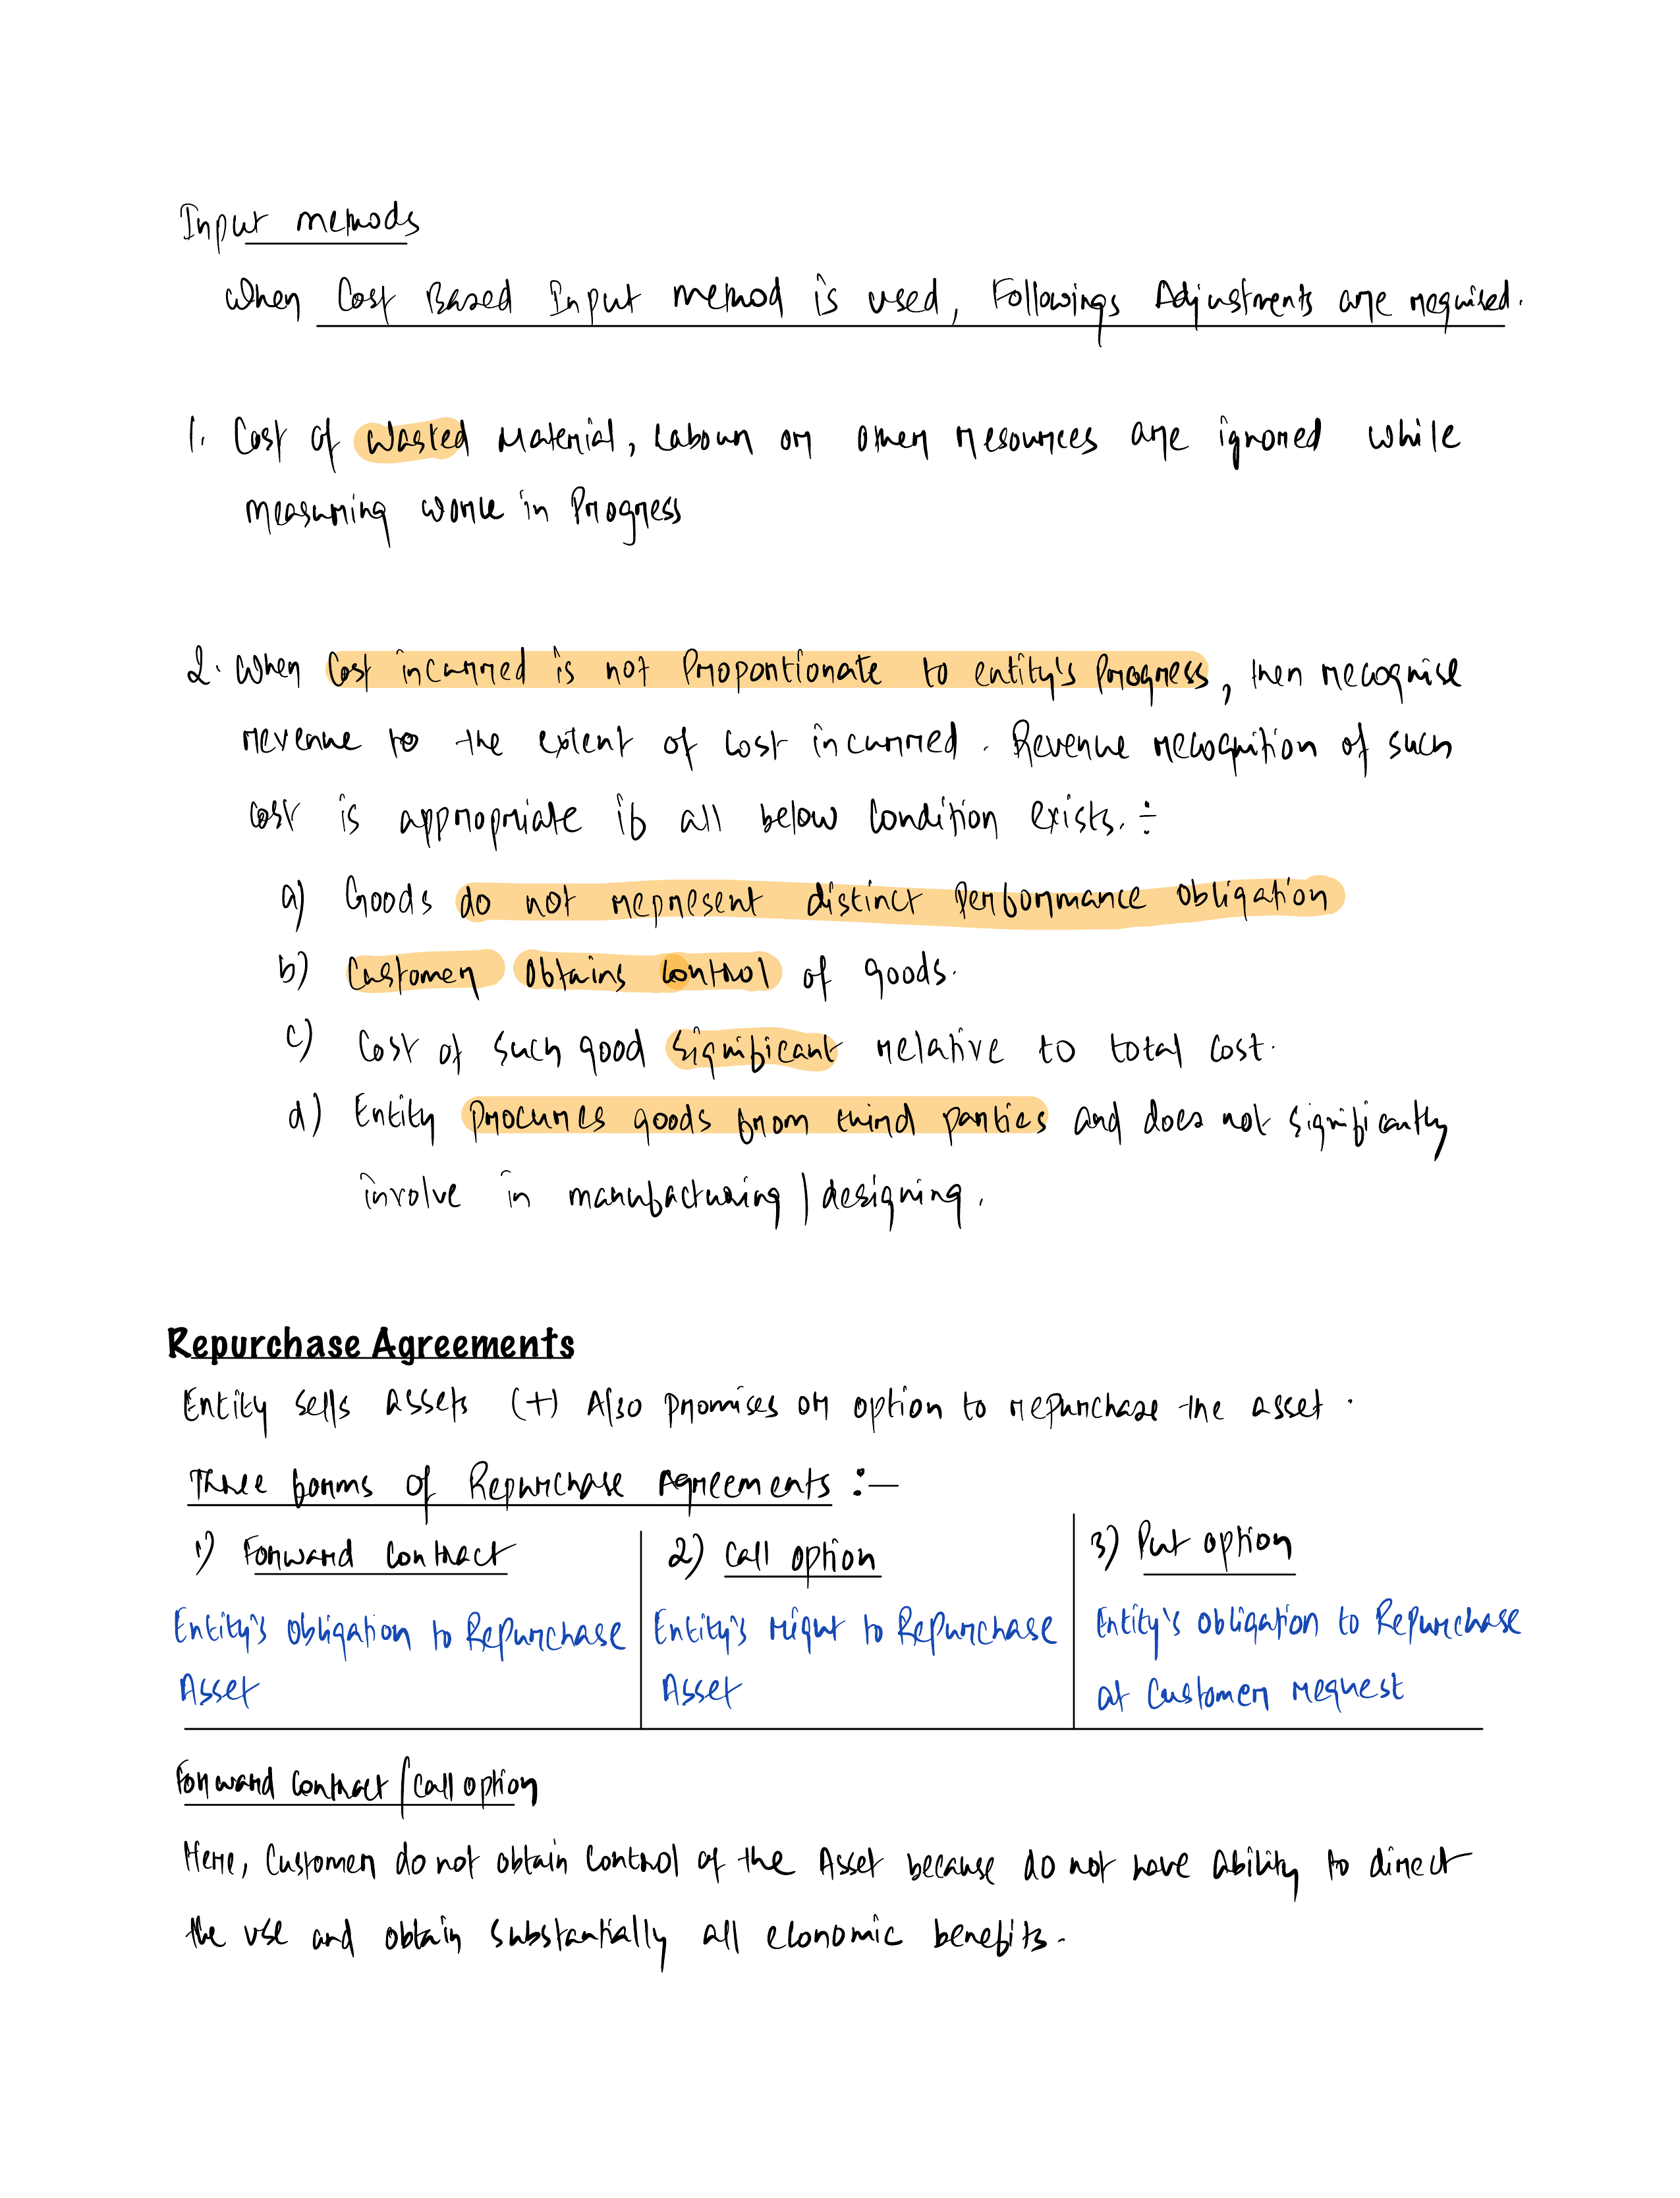 Input methods
When Cost Based Input method is used, Followings Adjustments are required.
1. Cost of wasted Material, Labour or other resources are ignored while
measuring work in Progress
2. When Cost incurred is not Proportionate to entity's Progress, then recognise
revenue to the extent of cost incurred. Revenue recognition of such
cost is appropriate if all below condition exists. ÷
a) Goods do not represent distinct Performance obligation
b) Customer Obtains control of goods.
c) Cost of such good significant relative to total cost.
d) Entity procures goods from third parties and does not significantly
involve in manufacturing / designing.
Repurchase Agreements
Entity sells assets (+) Also promises or option to repurchase the asset.
Three forms of Repurchase Agreements :-
1) Forward Contract
2) Call option
3) Put option
Entity's Obligation to Repurchase
Asset
Entity's right to Repurchase
Asset
Entity's obligation to Repurchase
at Customer request
Forward Contract / Call option
Here, Customer do not obtain Control of the Asset because do not have ability to direct
the use and obtain substantially all economic benefits.